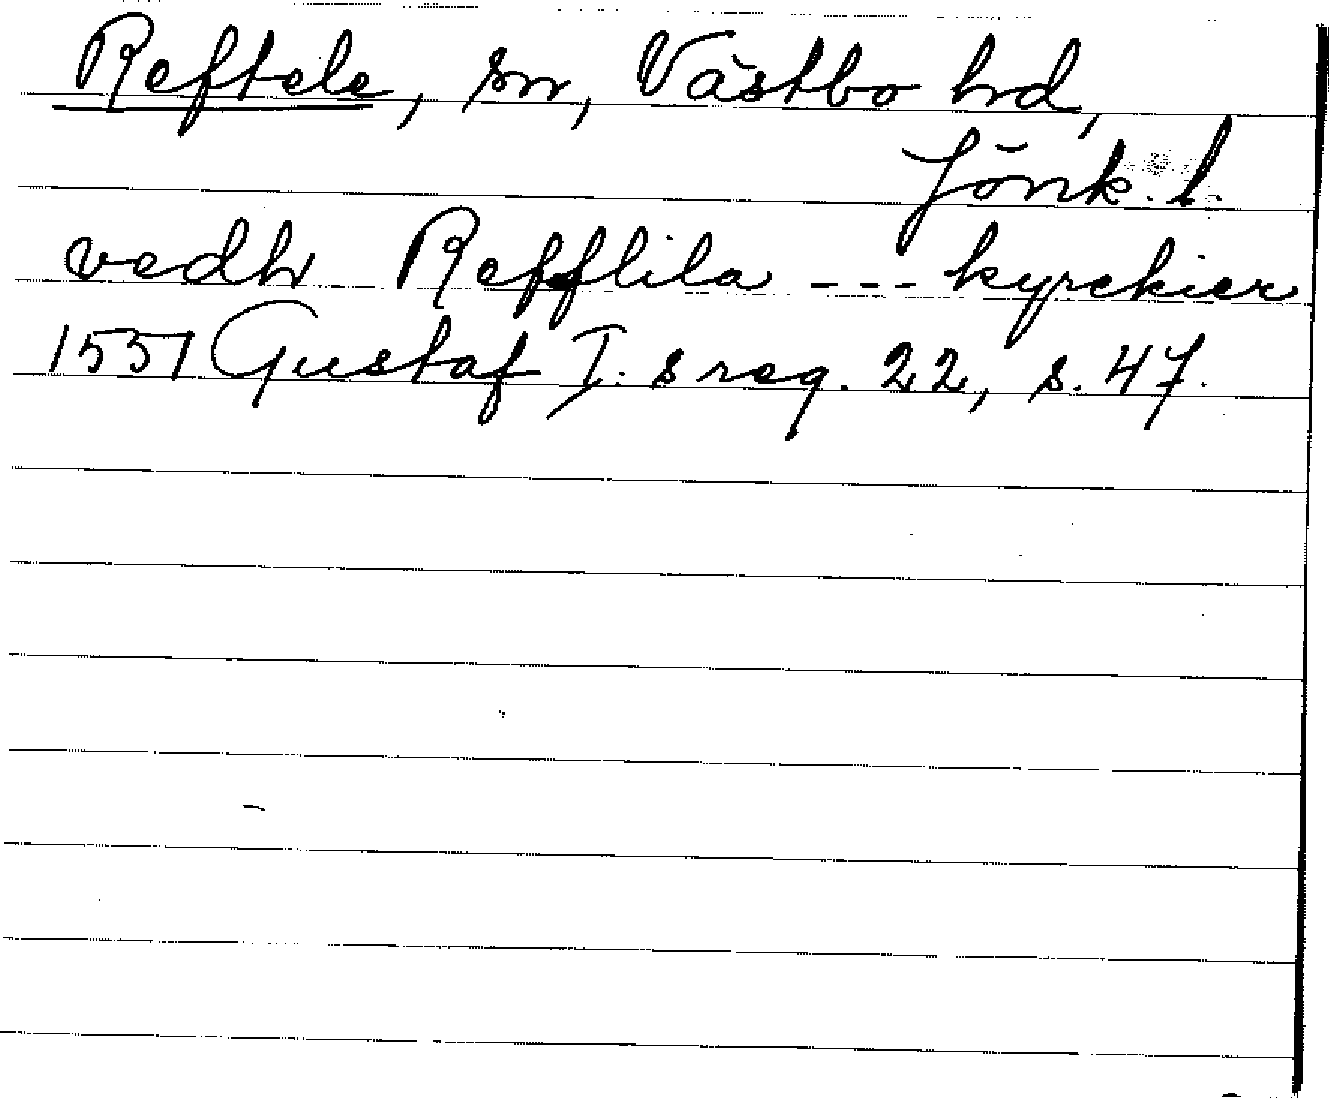 Reftele, sn, Västbo hd,
Jönk. l.
vedh Refflila --- kyrckier
1551 Gustaf I:s reg. 22, s. 47.